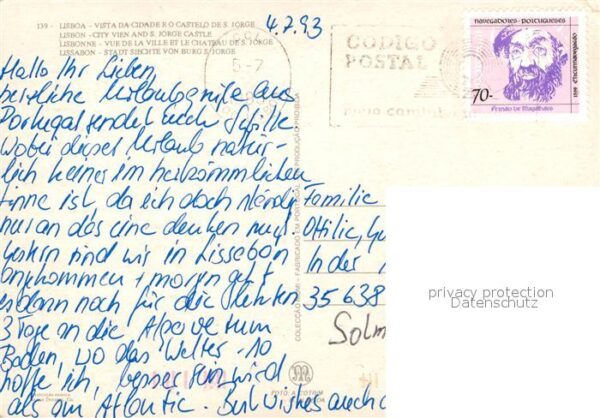 139 - LISBOA - VISTA DA CIDADE E O CASTELO DE S. JORGE
LISBON - CITY VIEN AND S. JORGE CASTLE
LISBONNE - VUE DE LA VILLE ET LE CHATEAU DE S. JORGE
LISSABON - STADT SIECHTE VON BURG S. JORGE
4.7.93
CODIGO
POSTAL
NAVEGADORES PORTUGUESES
70-
Fernão de Magalhães
Hallo Ihr Lieben,
herzliche Urlaubsgrüße aus
Portugal sendet euch
Wobei dieser Urlaub natür-
lich keiner im herkömmlichen
Sinne ist, da ich doch ständig
nur an das eine denken muß.
Gestern sind wir in Lissabon
angekommen + morgen geht
es dann noch für die letzten
3 Tage an die Algarve zum
Baden, wo das Wetter - so
hoffe ich, besser sein wird
als am Atlantic. Best wishes auch
Familie
Ottilie,
In der
35638
Solm
privacy protection
Datenschutz